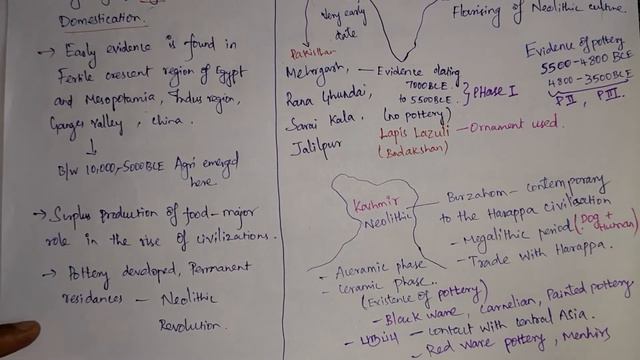 Domestication.
→ Early evidence is found in
Fertile crescent region of Egypt
and Mesopotamia, Indus region,
Ganges valley, China.
↓
B/w 10,000-5000BCE Agri emerged
here.
→ Surplus production of food-major
role in the rise of civilizations.
→ Pottery developed, Permanent
residances - Neolithic
Revolution.
Very early
date
Flarising of Neolithic culture.
Pakistan
Mehrgarh, — Evidence dating
7000BCE.
Rana Ghundai, to 5500BCE. } PHase I
Sarai Kala. (no pottery)
Jalilpur
Lapis Lazuli — Ornament used.
(Badakshan)
Evidence of pottery
5500-4800 BCE
4800-3500BCE
PII, PIII.
Kashmir
Neolithic
Burzahom - contemporary
to the Harappa civilisation
- Megalithic period (Dog +
Human)
- Trade with Harappa.
- Aceramic phase
- Ceramic phase..
(Existence of pottery)
- Black ware, Carnelian, Painted pottery
- contact with central Asia.
- Red ware pottery, Menhirs